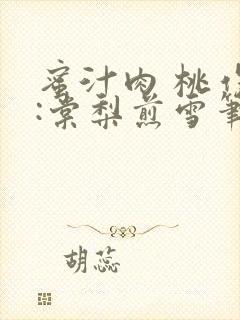 蜜汁肉桃作
:棠梨煎雪筆
胡蕊